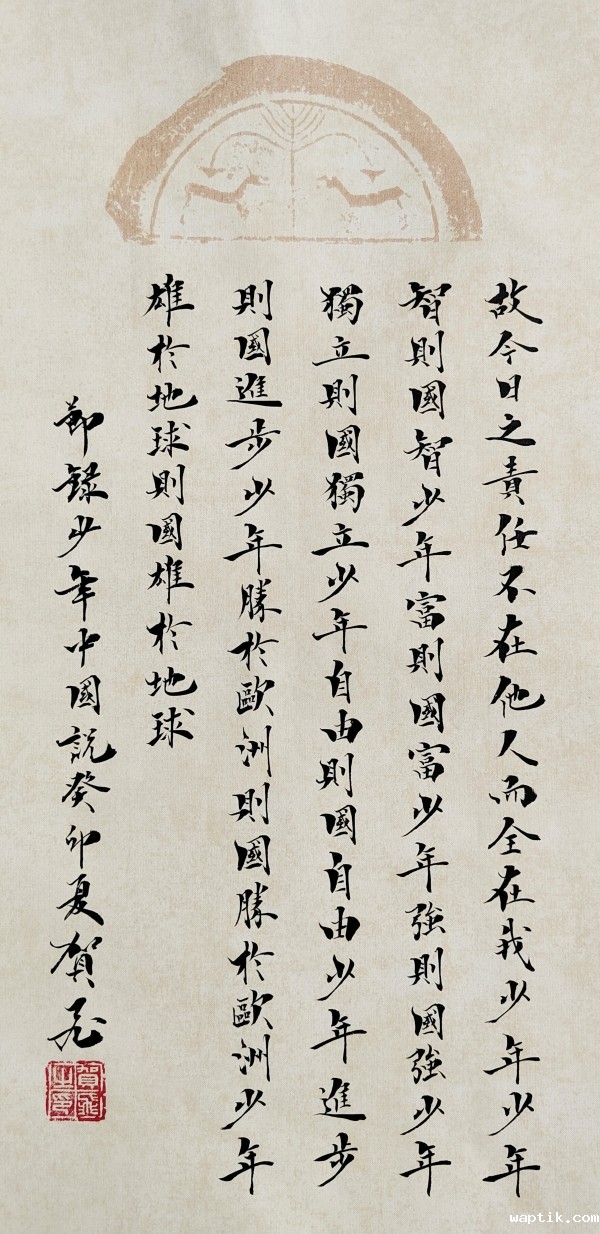 故今日之責任不在他人而全在我少年少年
智則國智少年富則國富少年強則國強少年
獨立則國獨立少年自由則國自由少年進步
則國進步少年勝於歐洲則國勝於歐洲少年
雄於地球則國雄於地球
節錄少年中國說癸卯夏賀飛
賀飛之印
waptik.com